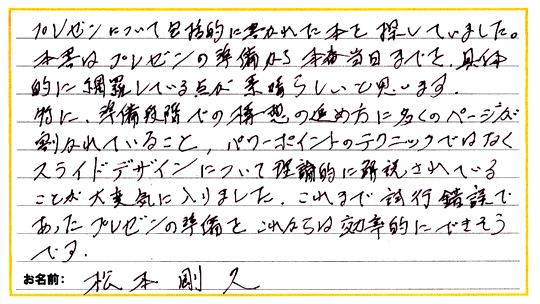 プレゼンについて包括的に書かれた本を探していました。
本書はプレゼンの準備から本番当日までを、具体
的に網羅している点が素晴らしいと思います。
特に、準備段階での構想の進め方に多くのページが
割かれていること、パワーポイントのテクニックではなく
スライドデザインについて理論的に解説されている
ことが大変気に入りました。これまで試行錯誤で
あったプレゼンの準備を、これからは効率的にできそう
です。
お名前: 松本剛久